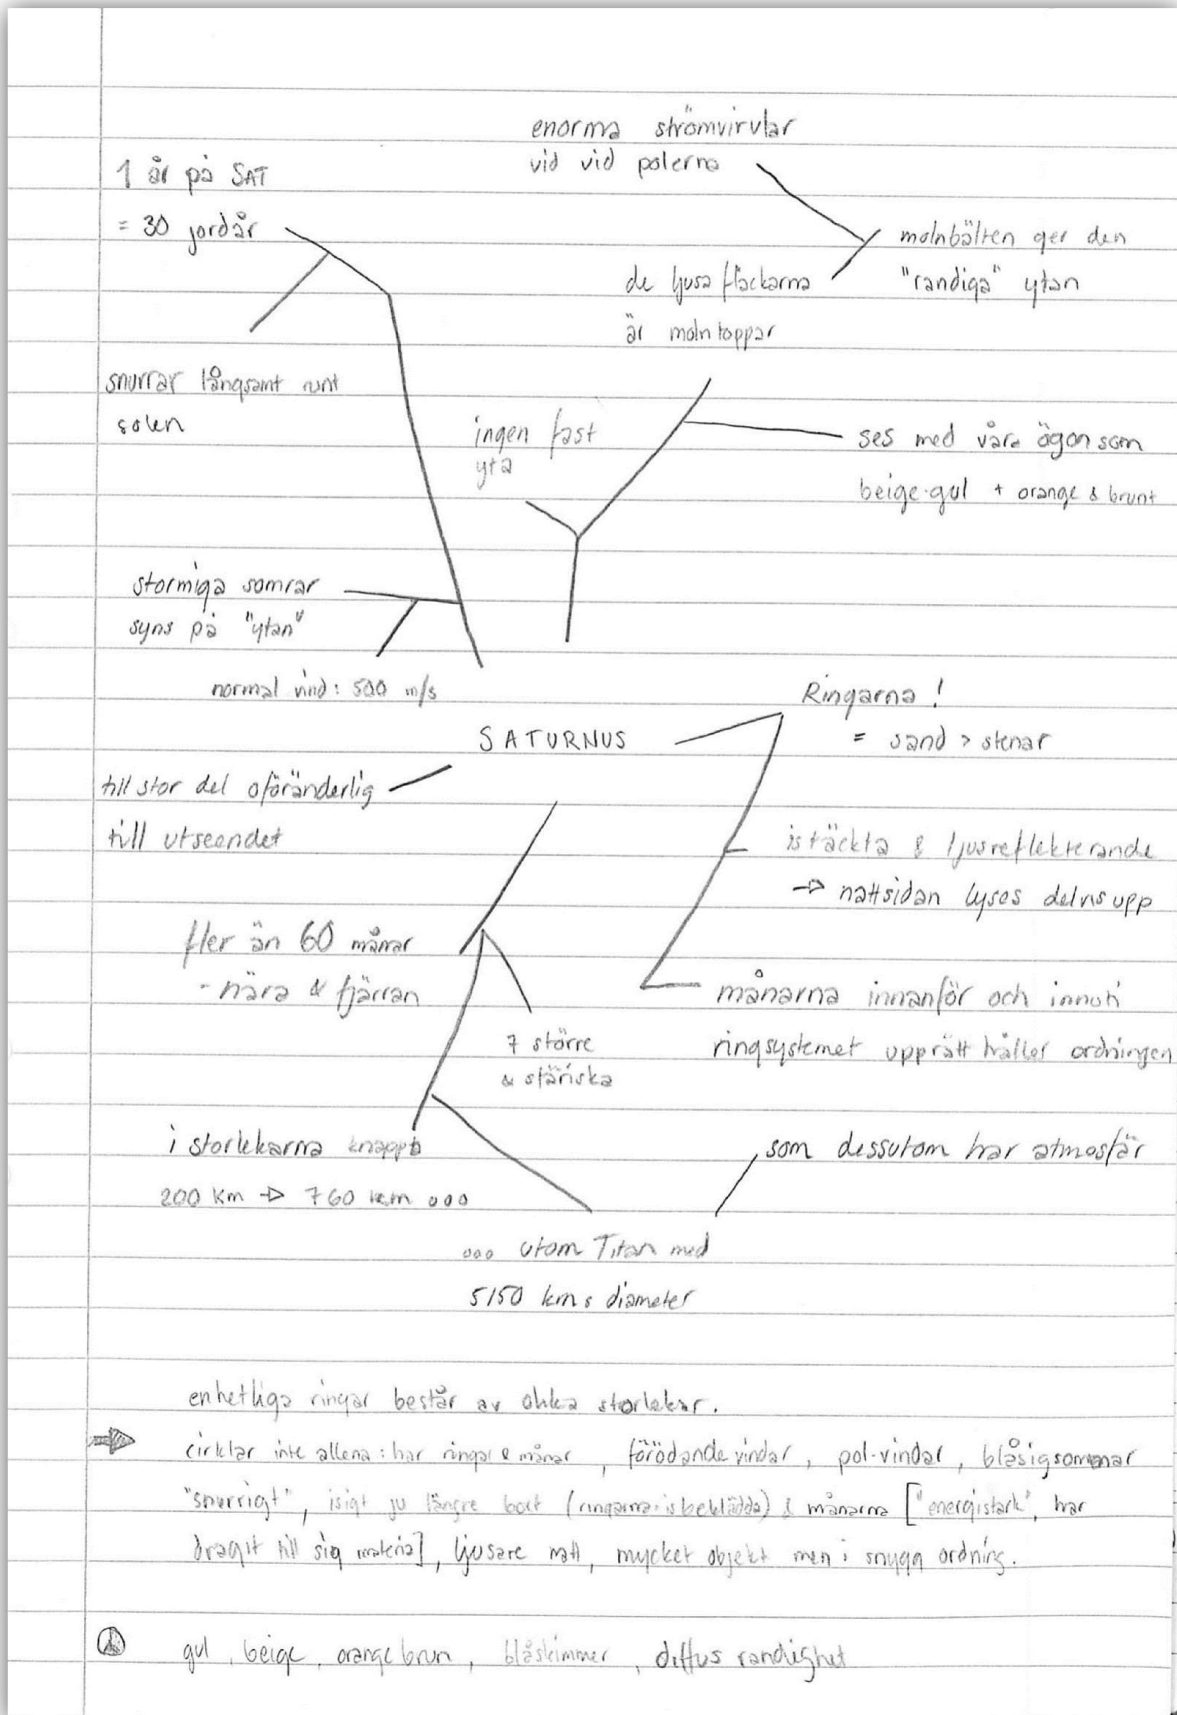 enorma strömvirvlar
vid vid polerna
1 år på SAT
= 30 jordår
molnbälten ger den
"randiga" ytan
de ljusa fläckarna
är molntoppar
snurrar långsamt runt
solen
ingen fast
yta
ses med våra ögon som
beige-gul + orange & brunt
stormiga somrar
syns på "ytan"
normal vind: 500 m/s
Ringarna!
= sand > stenar
SATURNUS
till stor del oföränderlig
till utseendet
istäckta & ljusreflekterande
→ nattsidan lyses delvis upp
fler än 60 månar
- nära & fjärran
månarna innanför och innuti
ringsystemet upprätthåller ordningen
7 större
& sfäriska
i storlekarna knappa
200 km → 760 km ...
som dessutom har atmosfär
... utom Titan med
5150 kms diameter
enhetliga ringar består av olika storlekar.
→ cirklar inte allena: har ringar & månar, förödande vindar, pol-vindar, blåsig sommar
"snurrigt", isigt ju längre bort (ringarna: isbeklädda) & månarna ["energistark", har
dragit till sig materia], ljusare natt, mycket objekt men i snygg ordning.
gul, beige, orange brun, blåskimmer, diffus randighet